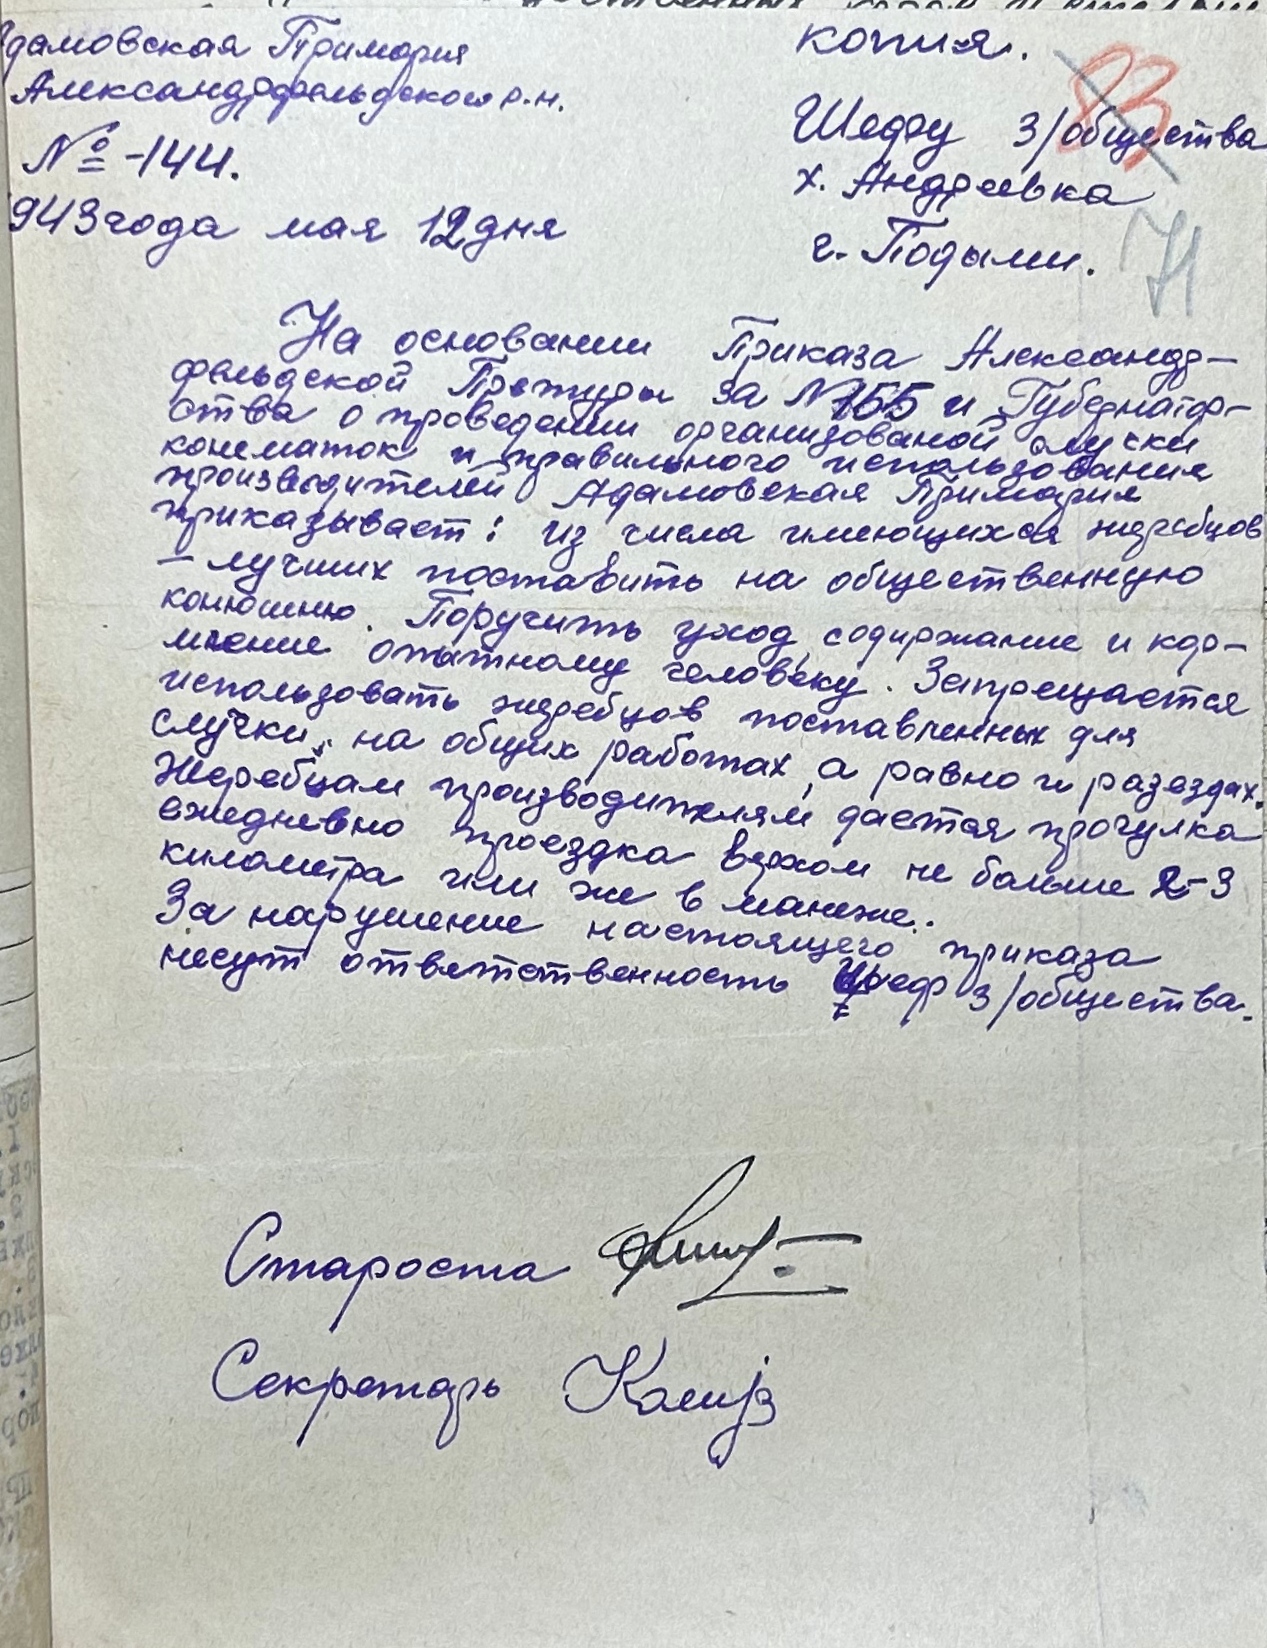 Адамовская Примария
Александрфельдского р.н.
№-144.
1943 года мая 12 дня
копия.
83
Шефу з/общества
х. Андреевка
г. Подыми.
71
На основании Приказа Александр-
фельдской Претуры за №155 и Губернатор-
ства о проведении организованой случки
конематок и правильного использования
производителей Адамовская Примария
приказывает: из числа имеющихся жеребцов
– лучших поставить на общественную
конюшню. Поручить уход, содержание и кор-
мление опытному человеку. Запрещается
использовать жеребцов поставленных для
случки, на общих работах, а равно и разездах.
Жеребцам производителям дается прогулка
ежедневно проездка верхом не больше 2-3
километра или же в манеже.
За нарушение настоящего приказа
несут ответственность Шеф з/общества.
Староста
Секретарь